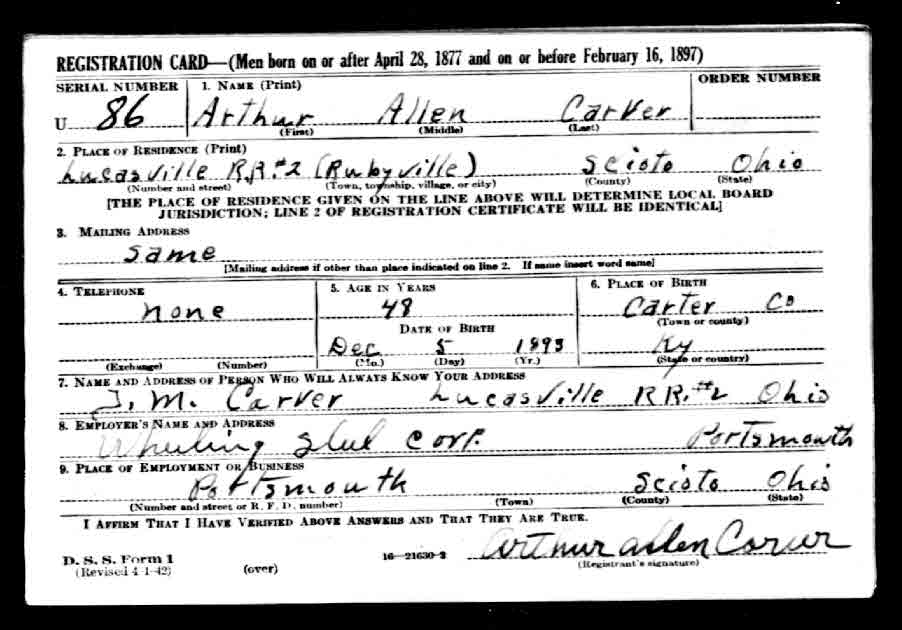 REGISTRATION CARD—(Men born on or after April 28, 1877 and on or before February 16, 1897)
SERIAL NUMBER 1. NAME (Print) ORDER NUMBER
U 86 Arthur Allen Carver
(First) (Middle) (Last)
2. PLACE OF RESIDENCE (Print)
Lucasville R.R.#2 (Rubyville) Scioto Ohio
(Number and street) (Town, township, village, or city) (County) (State)
[THE PLACE OF RESIDENCE GIVEN ON THE LINE ABOVE WILL DETERMINE LOCAL BOARD
JURISDICTION; LINE 2 OF REGISTRATION CERTIFICATE WILL BE IDENTICAL]
3. MAILING ADDRESS
same
[Mailing address if other than place indicated on line 2. If same insert word same]
4. TELEPHONE 5. AGE IN YEARS 6. PLACE OF BIRTH
none 48 Carter Co
(Town or county)
DATE OF BIRTH
Dec 5 1893 Ky
(Exchange) (Number) (Mo.) (Day) (Yr.) (State or country)
7. NAME AND ADDRESS OF PERSON WHO WILL ALWAYS KNOW YOUR ADDRESS
J. M. Carver Lucasville RR.#2 Ohio
8. EMPLOYER'S NAME AND ADDRESS
Wheeling Steel Corp. Portsmouth
9. PLACE OF EMPLOYMENT OR BUSINESS
Portsmouth Scioto Ohio
(Number and street or R. F. D. number) (Town) (County) (State)
I AFFIRM THAT I HAVE VERIFIED ABOVE ANSWERS AND THAT THEY ARE TRUE.
D. S. S. Form 1 16—21630-2 Arthur Allen Carver
(Revised 4-1-42) (over) (Registrant's signature)